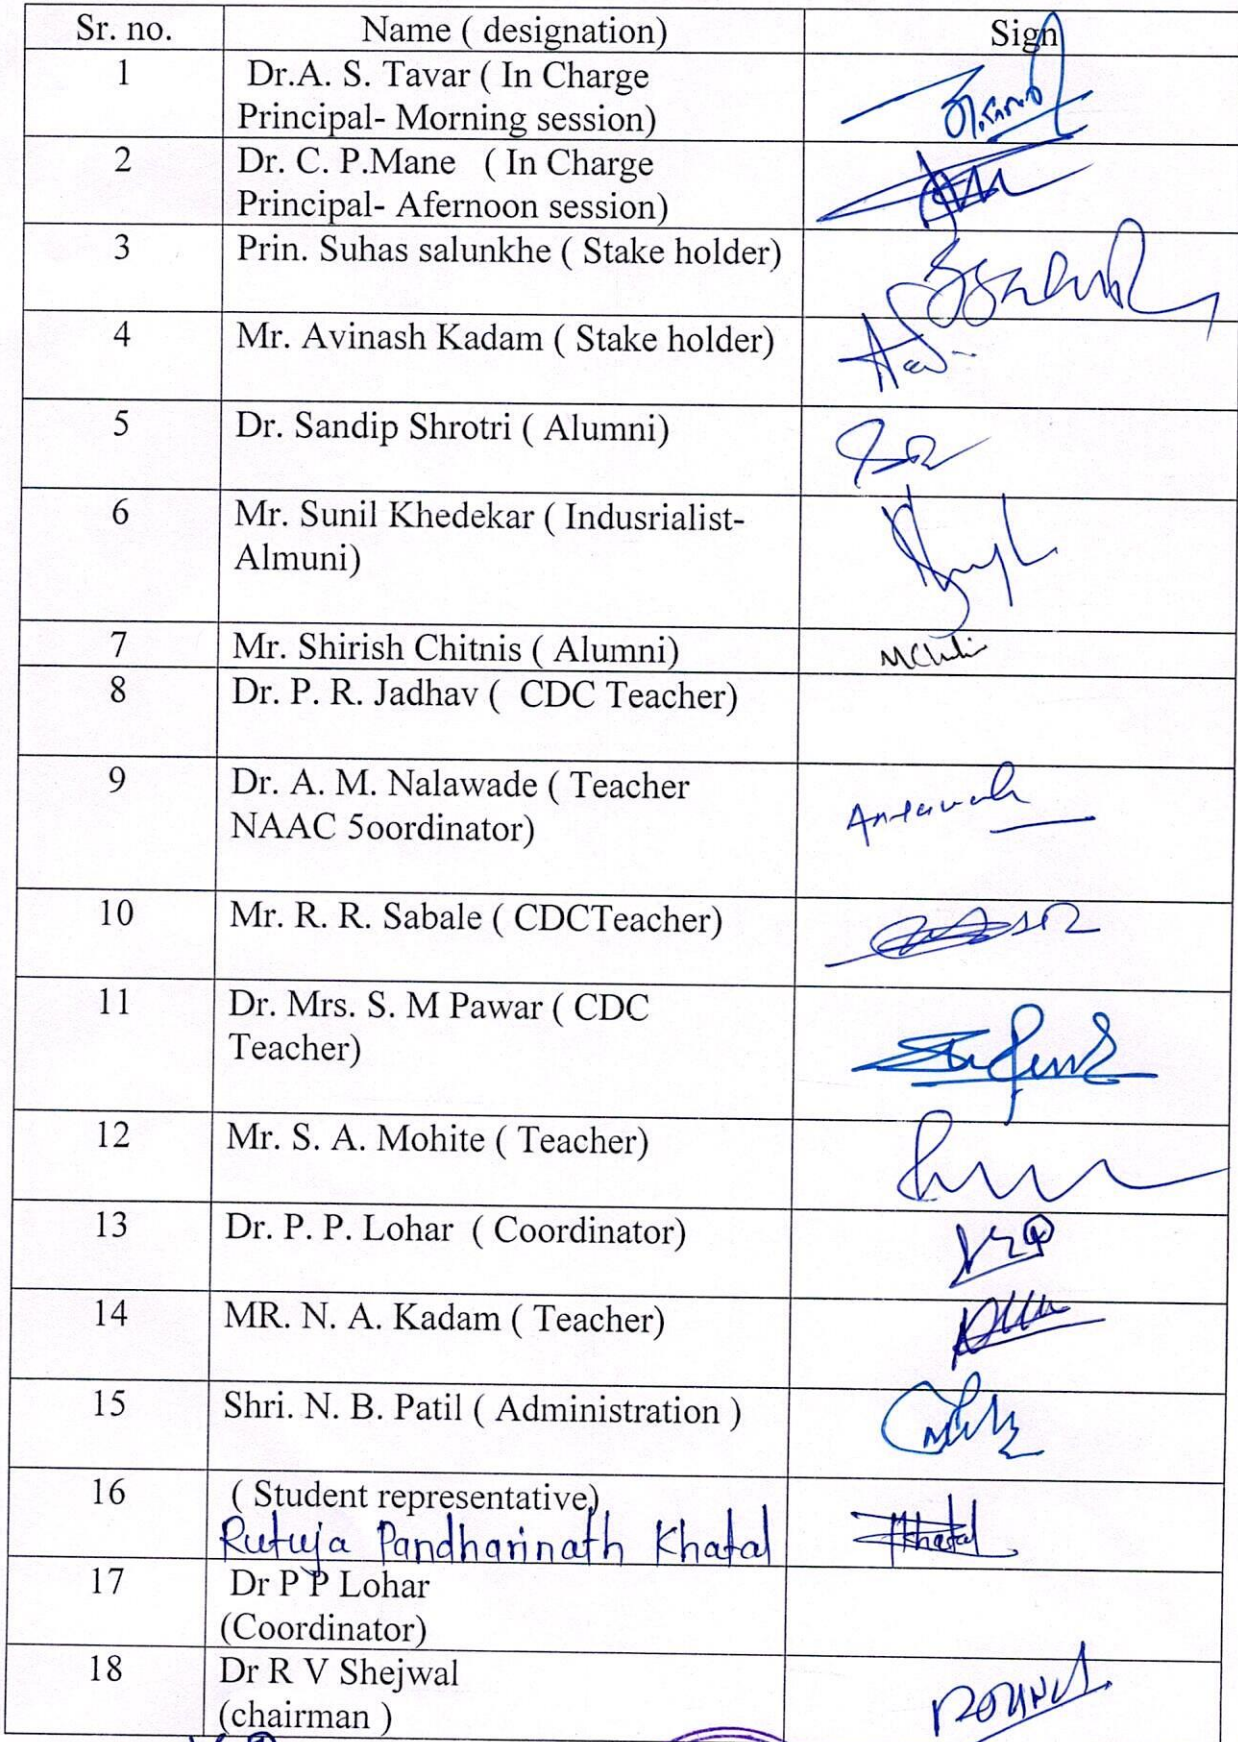 Sr. no. Name ( designation) Sign
1 Dr.A. S. Tavar ( In Charge
Principal- Morning session)
2 Dr. C. P.Mane ( In Charge
Principal- Afernoon session)
3 Prin. Suhas salunkhe ( Stake holder)
4 Mr. Avinash Kadam ( Stake holder)
5 Dr. Sandip Shrotri ( Alumni)
6 Mr. Sunil Khedekar ( Indusrialist-
Almuni)
7 Mr. Shirish Chitnis ( Alumni)
8 Dr. P. R. Jadhav ( CDC Teacher)
9 Dr. A. M. Nalawade ( Teacher
NAAC 5oordinator)
10 Mr. R. R. Sabale ( CDCTeacher)
11 Dr. Mrs. S. M Pawar ( CDC
Teacher)
12 Mr. S. A. Mohite ( Teacher)
13 Dr. P. P. Lohar ( Coordinator)
14 MR. N. A. Kadam ( Teacher)
15 Shri. N. B. Patil ( Administration )
16 ( Student representative)
Rutuja Pandharinath Khatal Khatal
17 Dr P P Lohar
(Coordinator)
18 Dr R V Shejwal
(chairman )